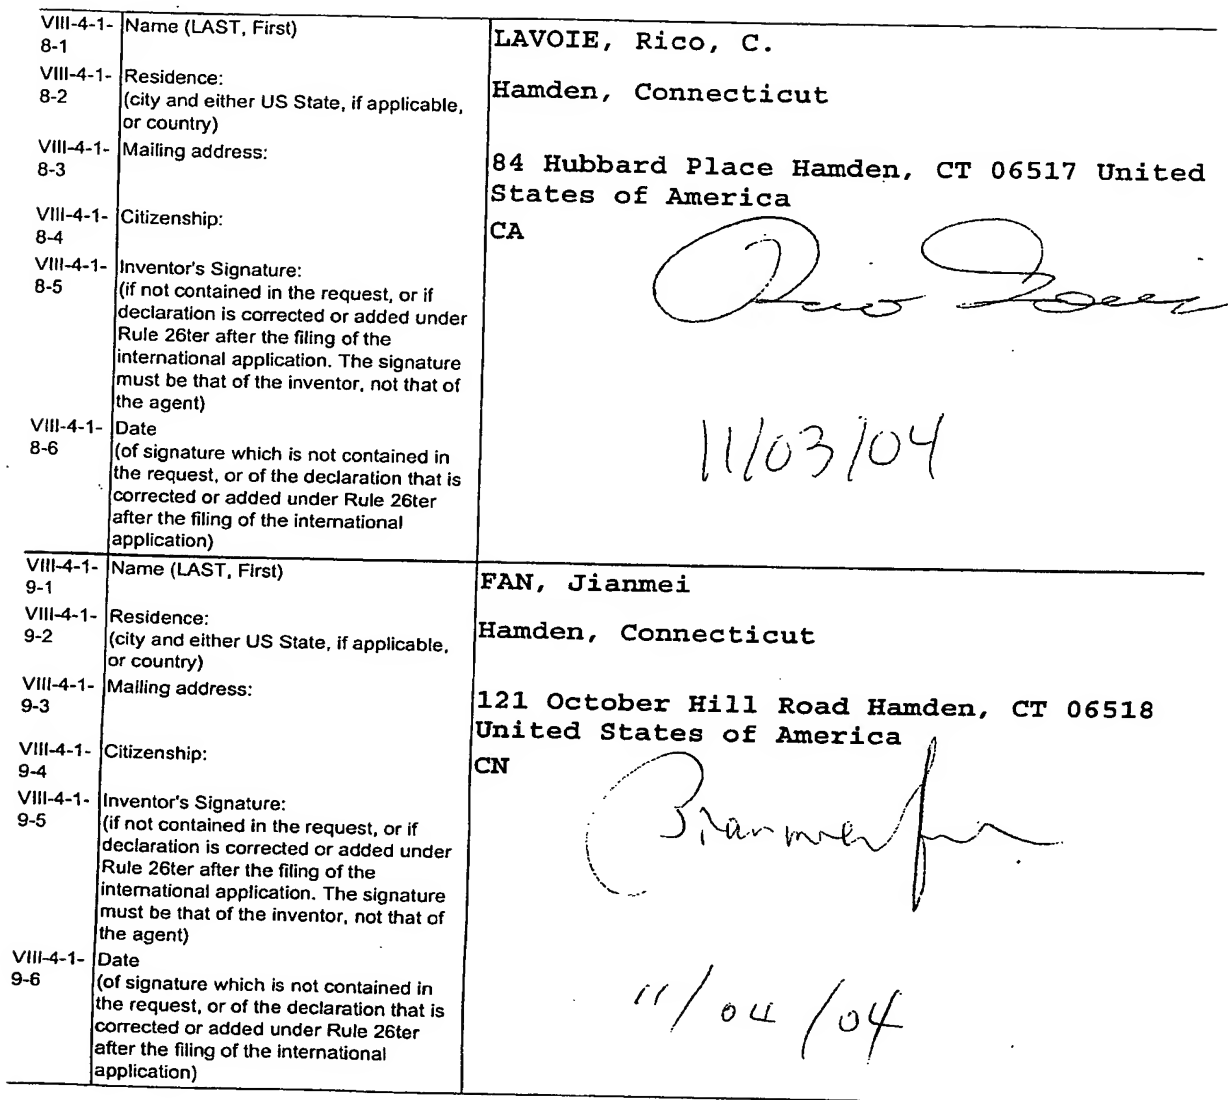 VIII-4-1- Name (LAST, First) LAVOIE, Rico, C.
8-1
VIII-4-1- Residence: Hamden, Connecticut
8-2 (city and either US State, if applicable,
or country)
VIII-4-1- Mailing address: 84 Hubbard Place Hamden, CT 06517 United
8-3 States of America
VIII-4-1- Citizenship: CA
8-4
VIII-4-1- Inventor's Signature:
8-5 (if not contained in the request, or if
declaration is corrected or added under
Rule 26ter after the filing of the
international application. The signature
must be that of the inventor, not that of
the agent)
VIII-4-1- Date 11/03/04
8-6 (of signature which is not contained in
the request, or of the declaration that is
corrected or added under Rule 26ter
after the filing of the international
application)
VIII-4-1- Name (LAST, First) FAN, Jianmei
9-1
VIII-4-1- Residence: Hamden, Connecticut
9-2 (city and either US State, if applicable,
or country)
VIII-4-1- Mailing address: 121 October Hill Road Hamden, CT 06518
9-3 United States of America
VIII-4-1- Citizenship: CN
9-4
VIII-4-1- Inventor's Signature:
9-5 (if not contained in the request, or if
declaration is corrected or added under
Rule 26ter after the filing of the
international application. The signature
must be that of the inventor, not that of
the agent)
VIII-4-1- Date 11/04/04
9-6 (of signature which is not contained in
the request, or of the declaration that is
corrected or added under Rule 26ter
after the filing of the international
application)